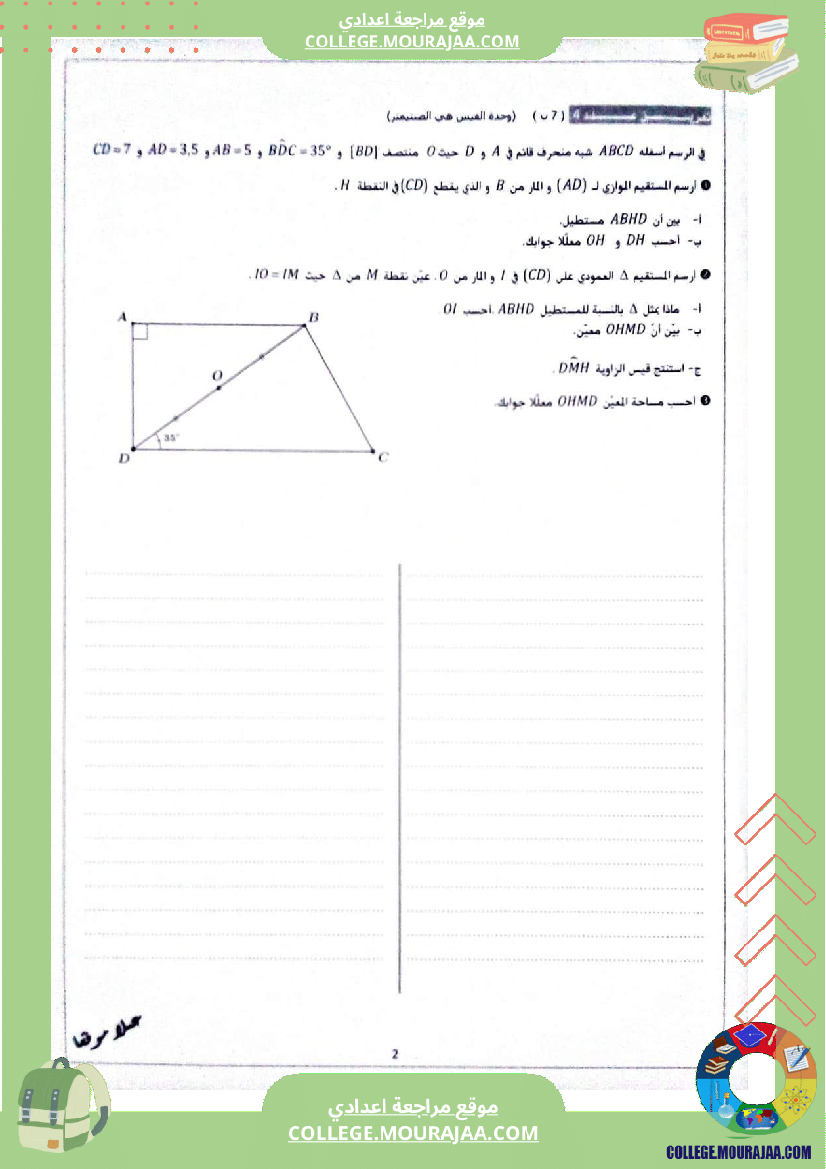 موقع مراجعة اعدادي
COLLEGE.MOURAJAA.COM
تمريـــن عـــدد 4 ( 7 ن ) (وحدة القيس هي الصنتيمتر)
في الرسم أسفله ABCD شبه منحرف قائم في A و D حيث O منتصف [BD] و BD̂C = 35° و AB = 5 و AD = 3,5 و CD = 7
❶ أرسم المستقيم الموازي لـ (AD) و المار من B و الذي يقطع (CD) في النقطة H .
أ- بين أن ABHD مستطيل.
ب- أحسب DH و OH معلّلا جوابك.
❷ أرسم المستقيم Δ العمودي على (CD) في I و المار من O . عيّن نقطة M من Δ حيث IO = IM .
أ- ماذا يمثل Δ بالنسبة للمستطيل ABHD .أحسب OI
ب- بيّن أنّ OHMD معيّن.
ج- استنتج قيس الزاوية DM̂H .
❸ أحسب مساحة المعيّن OHMD معلّلا جوابك.
A
B
O
35°
D
C
عملا موفقا
2
موقع مراجعة اعدادي
COLLEGE.MOURAJAA.COM
COLLEGE.MOURAJAA.COM